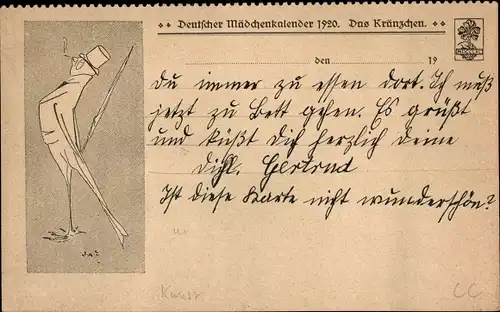 Deutscher Mädchenkalender 1920. Das Kränzchen.
den 19
Du immer zu essen dort. Ich muß
jetzt zu Bett gehen. Es grüßt
und küßt Dich herzlich Deine
Gertrud
Ist diese Karte nicht wunderschön?
Kunst
CC